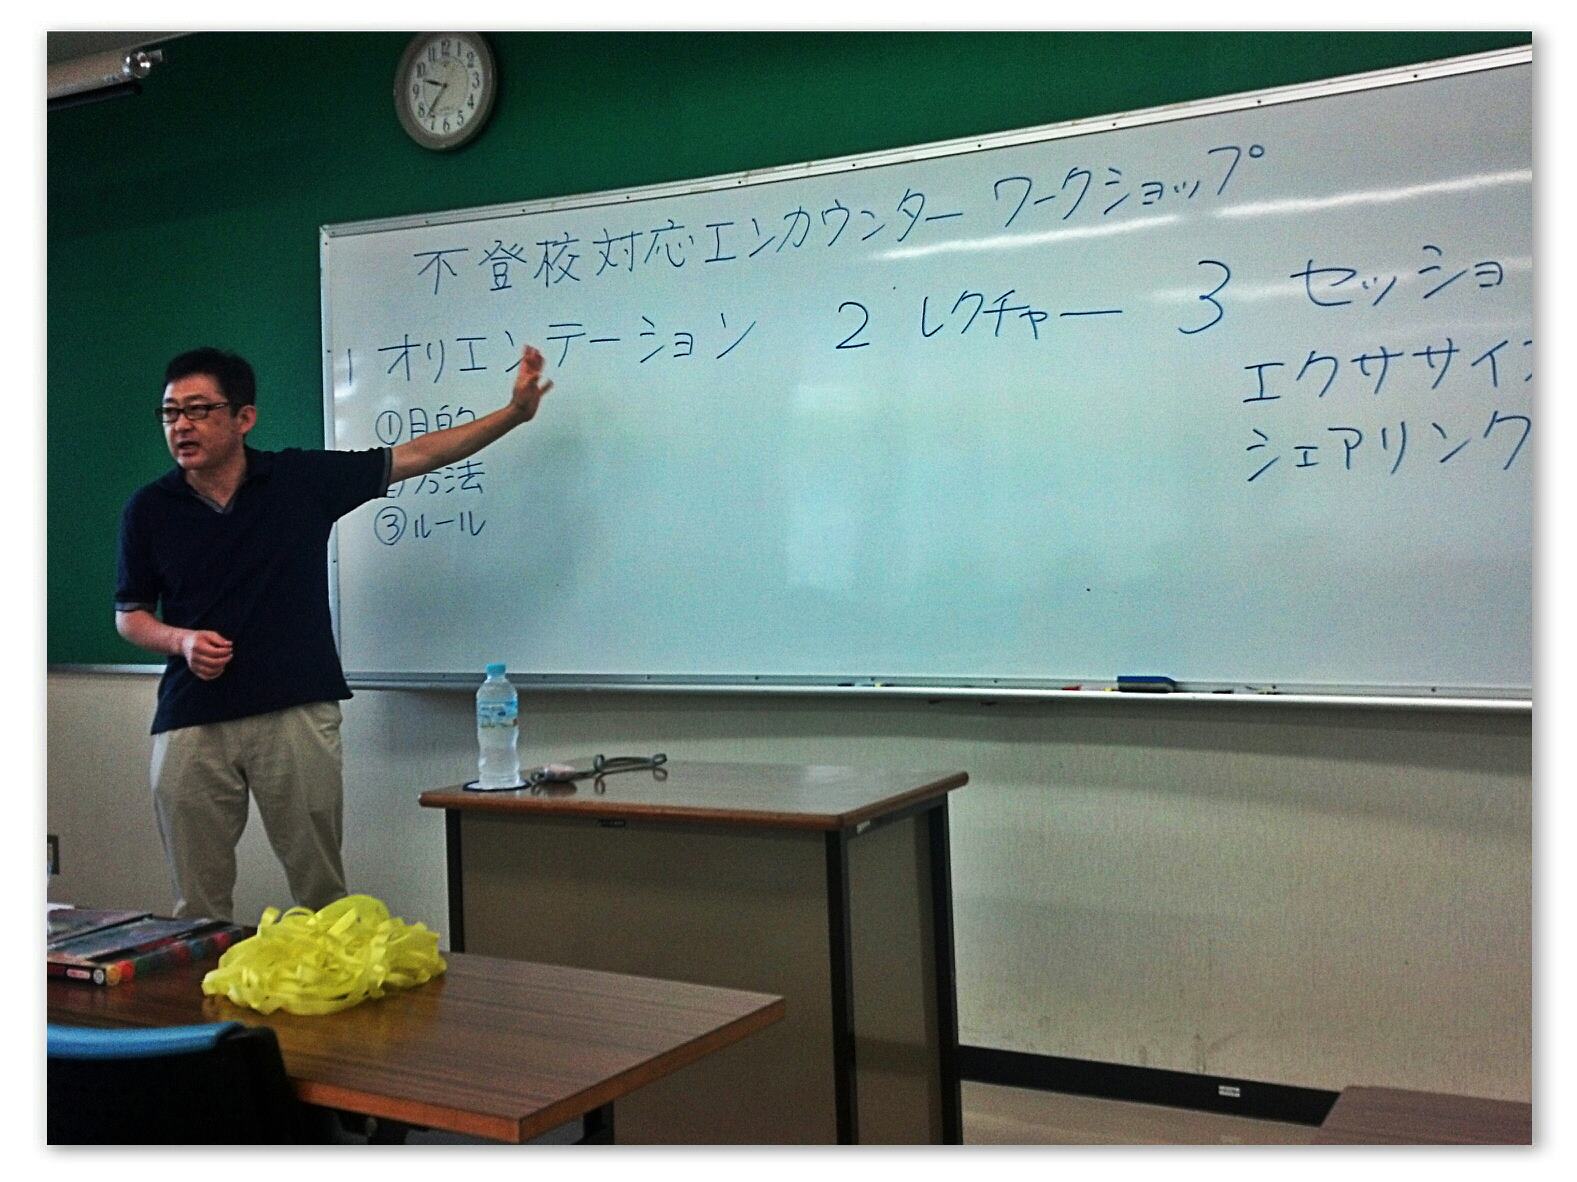 不登校対応エンカウンター ワークショップ
1 オリエンテーション 2 レクチャー 3 セッショ
エクササイズ
シェアリング
①目的
②方法
③ルール